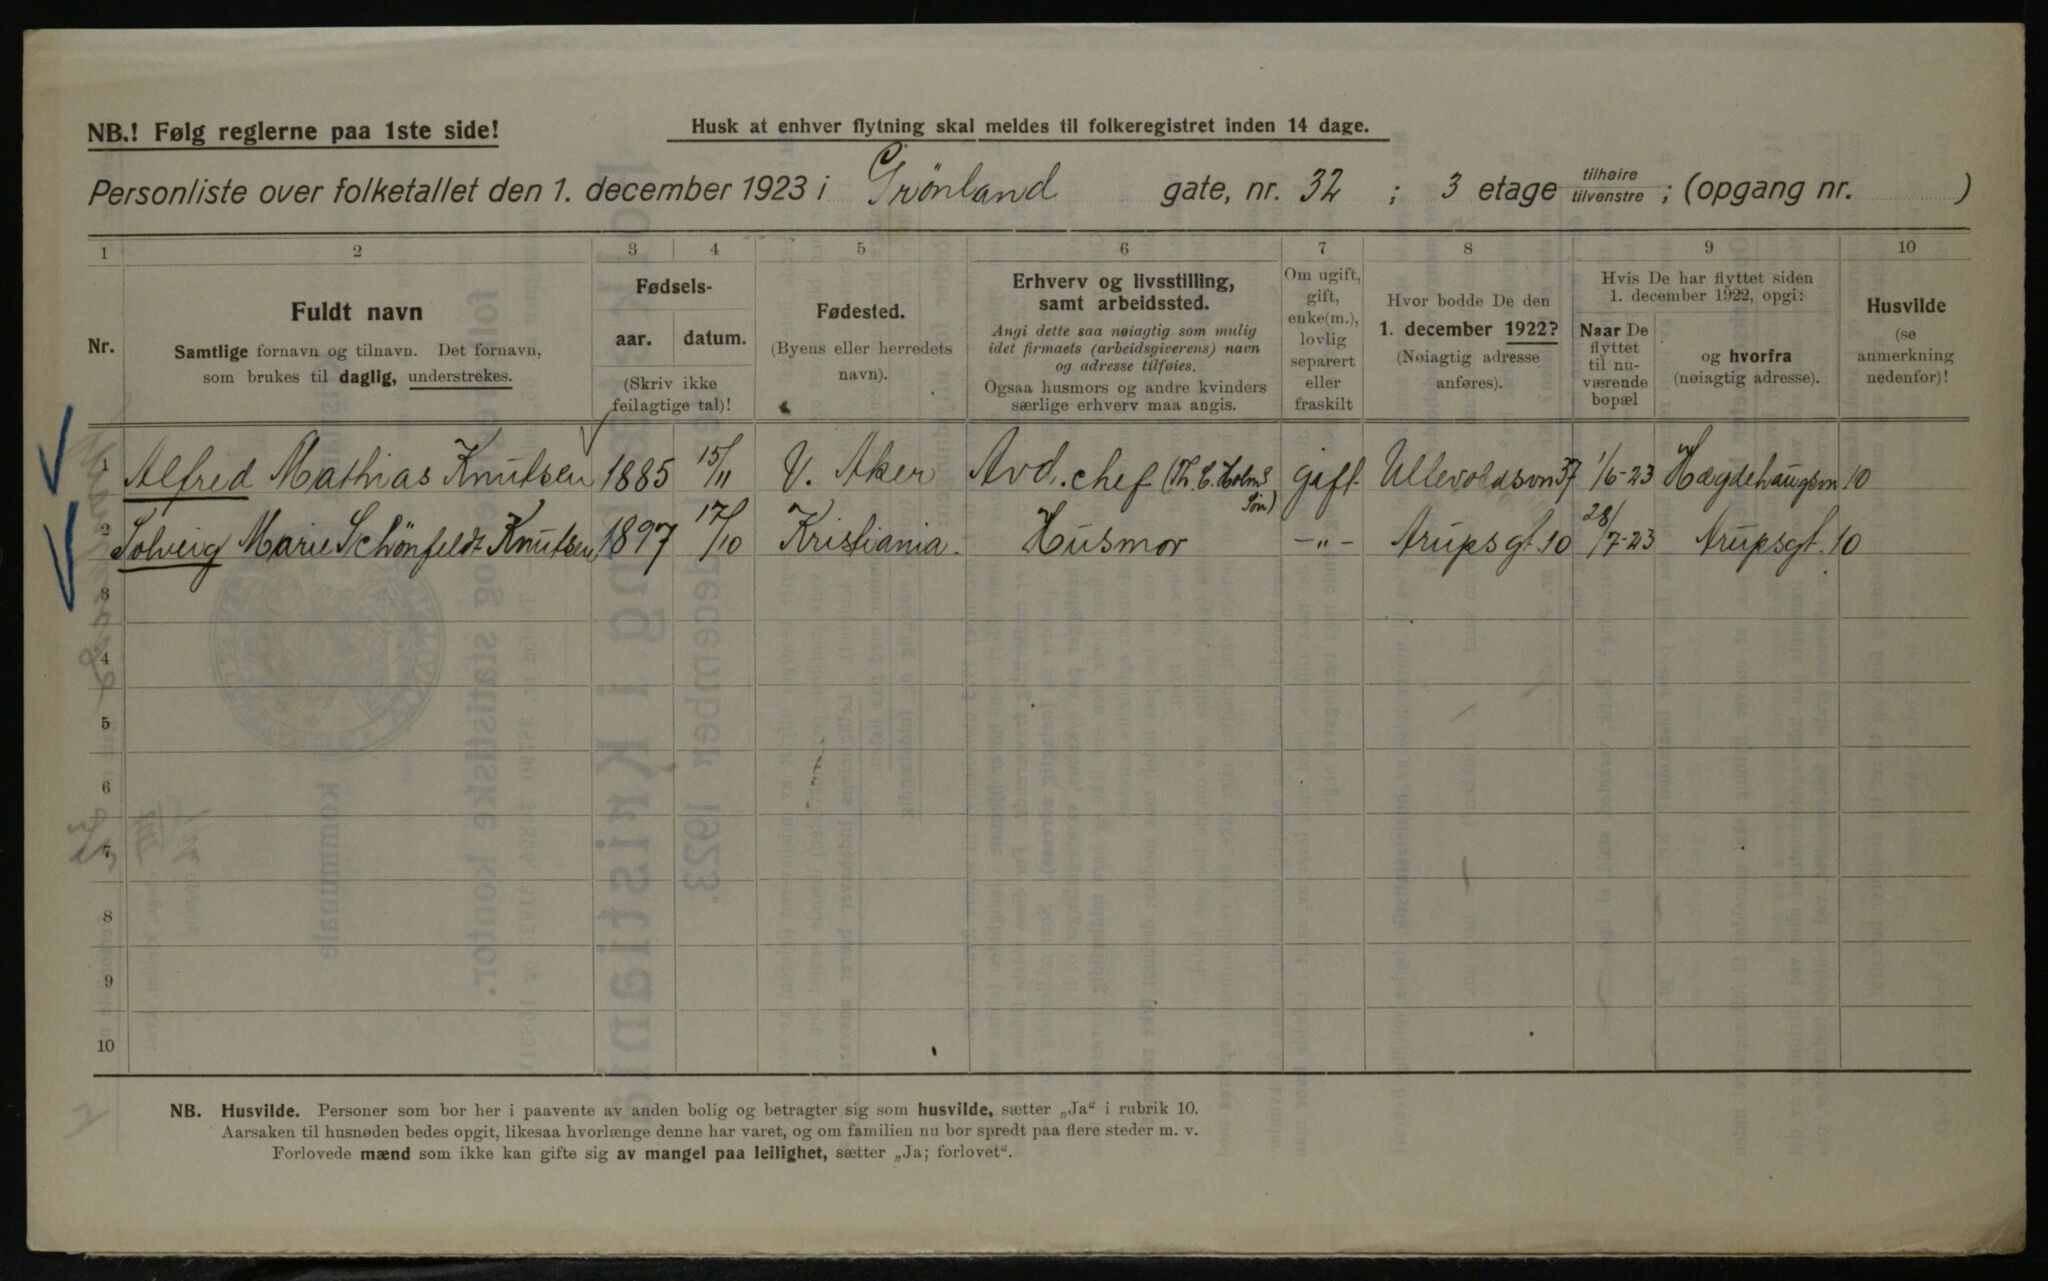 NB.! Følg reglerne paa 1ste side!
Husk at enhver flytning skal meldes til folkeregistret inden 14 dage.
Personliste over folketallet den 1. december 1923 i Grönland gate, nr. 32 ; 3 etage tilhøire tilvenstre ; (opgang nr. )
1 2 3 4 5 6 7 8 9 10
Nr.
Fuldt navn
Samtlige fornavn og tilnavn. Det fornavn,
som brukes til daglig, understrekes.
Fødsels-
aar. datum.
(Skriv ikke
feilagtige tal)!
Fødested.
(Byens eller herredets
navn).
Erhverv og livsstilling,
samt arbeidssted.
Angi dette saa nøiagtig som mulig
idet firmaets (arbeidsgiverens) navn
og adresse tilføies.
Ogsaa husmors og andre kvinders
særlige erhverv maa angis.
Om ugift,
gift,
enke(m.),
lovlig
separert
eller
fraskilt
Hvor bodde De den
1. december 1922?
(Nøiagtig adresse
anføres).
Hvis De har flyttet siden
1. december 1922, opgi:
Naar De
flyttet
til nu-
værende
bopæl
og hvorfra
(nøiagtig adresse).
Husvilde
(se
anmerkning
nedenfor)!
1 Alfred Mathias Knutsen 1885 15/11 V. Aker Avd. chef (Th. C. Holms Søn) gift Ullevoldsvn 37 1/6-23 Hægdehaugsvn 10
2 Solveig Marie Schönfeldt Knutsen 1897 17/10 Kristiania Husmor -"- Arupsgt. 10 28/7-23 Arupsgt. 10
3
4
5
6
7
8
9
10
NB. Husvilde. Personer som bor her i paavente av anden bolig og betragter sig som husvilde, sætter „Ja“ i rubrik 10.
Aarsaken til husnøden bedes opgit, likesaa hvorlænge denne har varet, og om familien nu bor spredt paa flere steder m. v.
Forlovede mænd som ikke kan gifte sig av mangel paa leilighet, sætter „Ja; forlovet“.